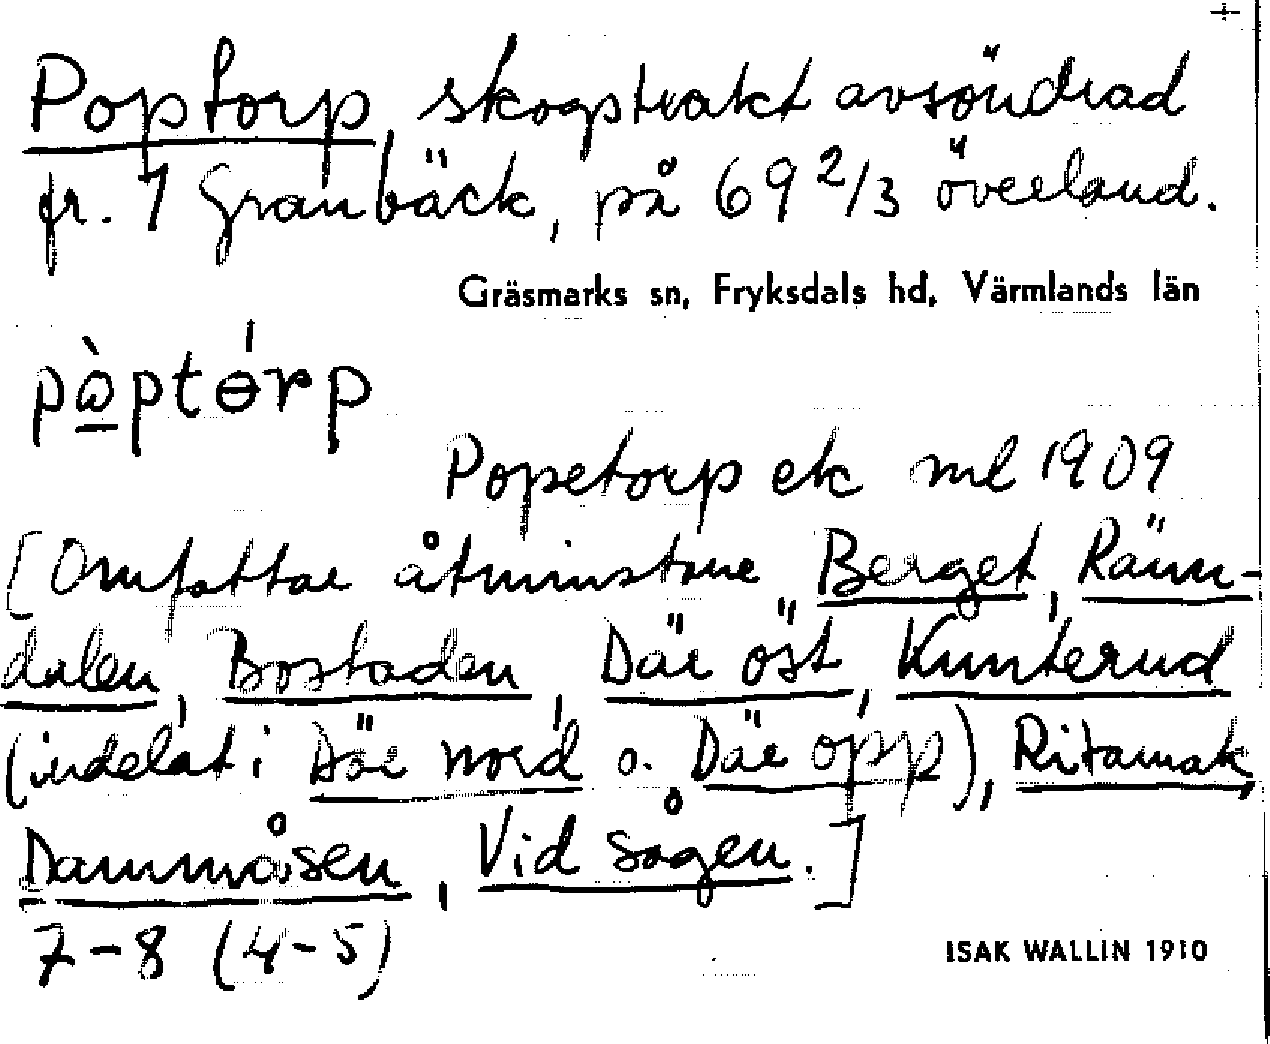 Poptorp, skogstrakt avsöndrad
fr. 1 Granbäck, på 69 2/3 öresland.
Gräsmarks sn, Fryksdals hd, Värmlands län
pòptórp
Popetorp ek ml 1909
[Omfattar åtminstone Berget, Ränn-
dalen, Bostaden, Där öst, Kunterud
(indelat i Där nord o. Där opp), Ritamak,
Dammåsen, Vid sågen.]
7-8 (4-5)
ISAK WALLIN 1910